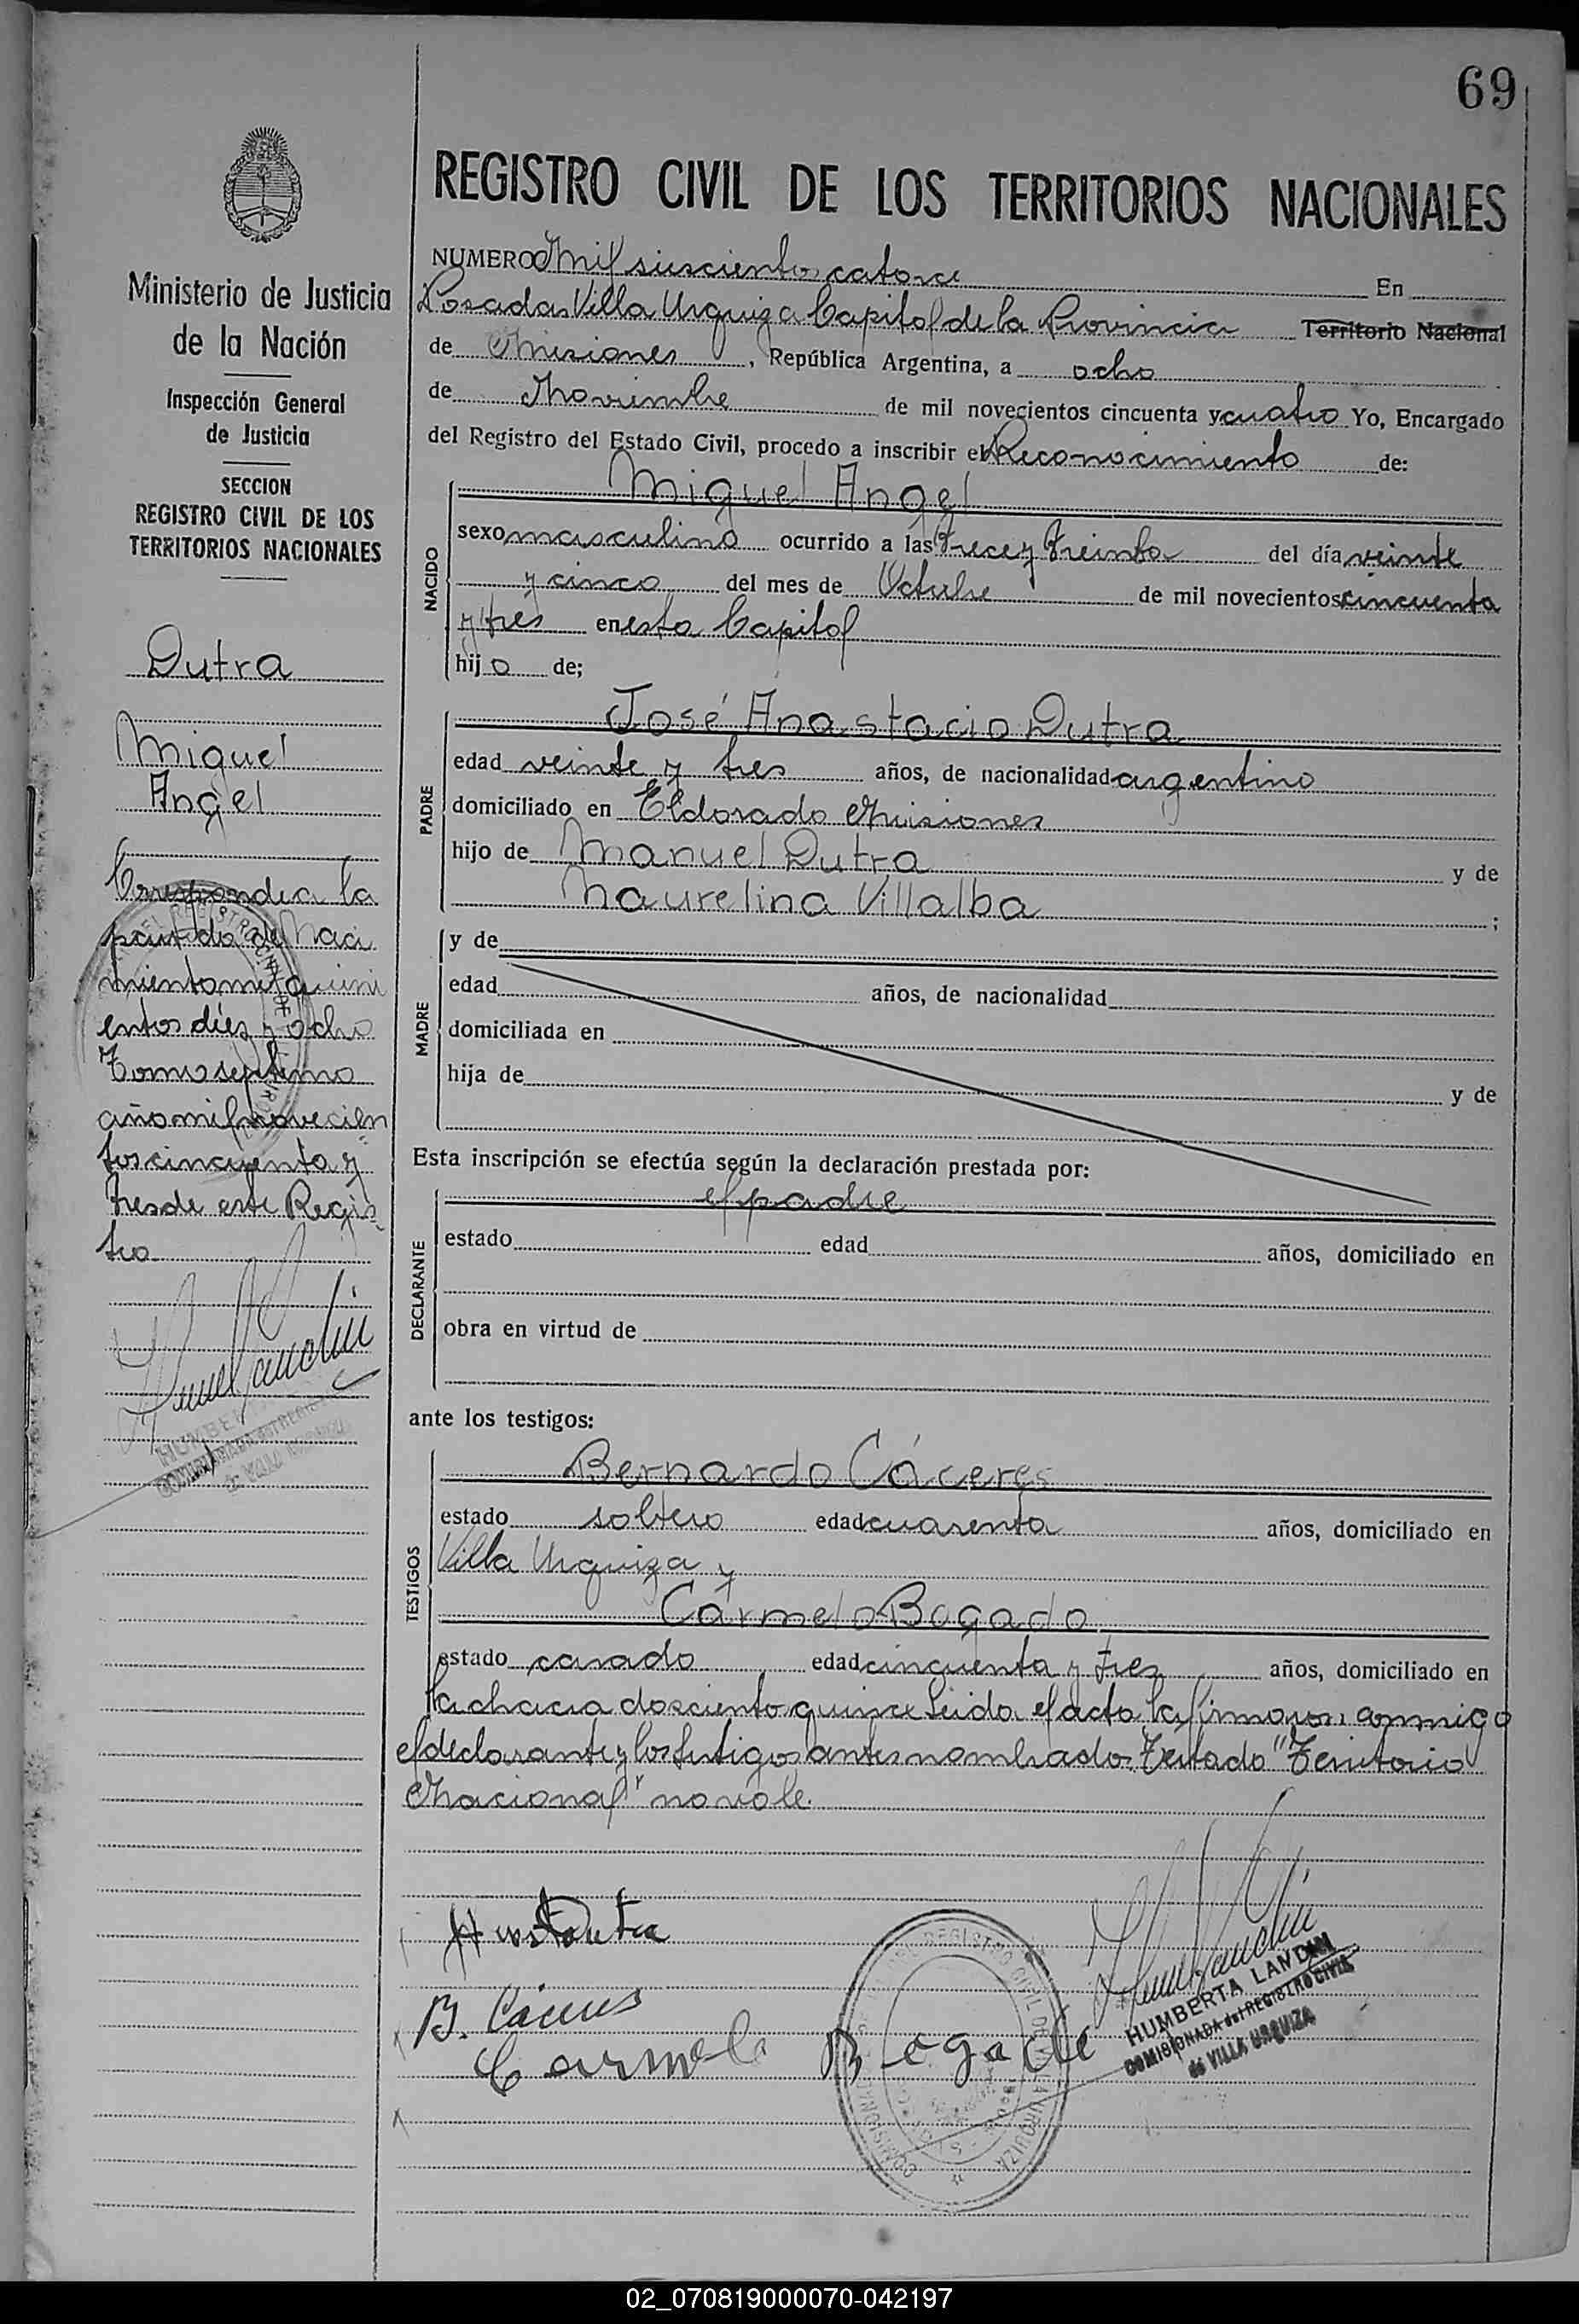 69
REGISTRO CIVIL DE LOS TERRITORIOS NACIONALES
Ministerio de Justicia
de la Nación
Inspección General
de Justicia
SECCION
REGISTRO CIVIL DE LOS
TERRITORIOS NACIONALES
Dutra
Miguel
Angel
Corresponde a la
partida de Naci
miento mil quini
entos diés y ocho
Tomo septimo
año mil novecien
tos cincuenta y
tres de este Regis
tro
NUMERO Mil seiscientos catorce En
Posadas Villa Urquiza Capital de la Provincia Territorio Nacional
de Misiones, República Argentina, a ocho
de Noviembre de mil novecientos cincuenta y cuatro Yo, Encargado
del Registro del Estado Civil, procedo a inscribir el Reconocimiento de:
NACIDO
Miguel Angel
sexo masculino ocurrido a las trece y treinta del día veinte
y cinco del mes de Octubre de mil novecientos cincuenta
y tres en esta Capital
hijo de;
PADRE
José Anastacio Dutra
edad veinte y tres años, de nacionalidad argentino
domiciliado en Eldorado Misiones
hijo de Manuel Dutra y de
Naurelina Villalba ;
MADRE
y de
edad años, de nacionalidad
domiciliada en
hija de y de
Esta inscripción se efectúa según la declaración prestada por:
DECLARANTE
el padre
estado edad años, domiciliado en
obra en virtud de
ante los testigos:
TESTIGOS
Bernardo Cáceres
estado soltero edad cuarenta años, domiciliado en
Villa Urquiza y
Carmelo Bogado
estado casado edad cincuenta y tres años, domiciliado en
la chacra doscientos quince Leida el acta la firmaron conmigo
el declarante y los testigos antes nombrados. Testado "Territorio
Nacional" no vale.
B. Cáceres
Carmelo Bogado
HUMBERTA LANDINI
COMISIONADA del REGISTRO CIVIL
de VILLA URQUIZA
02_070819000070-042197